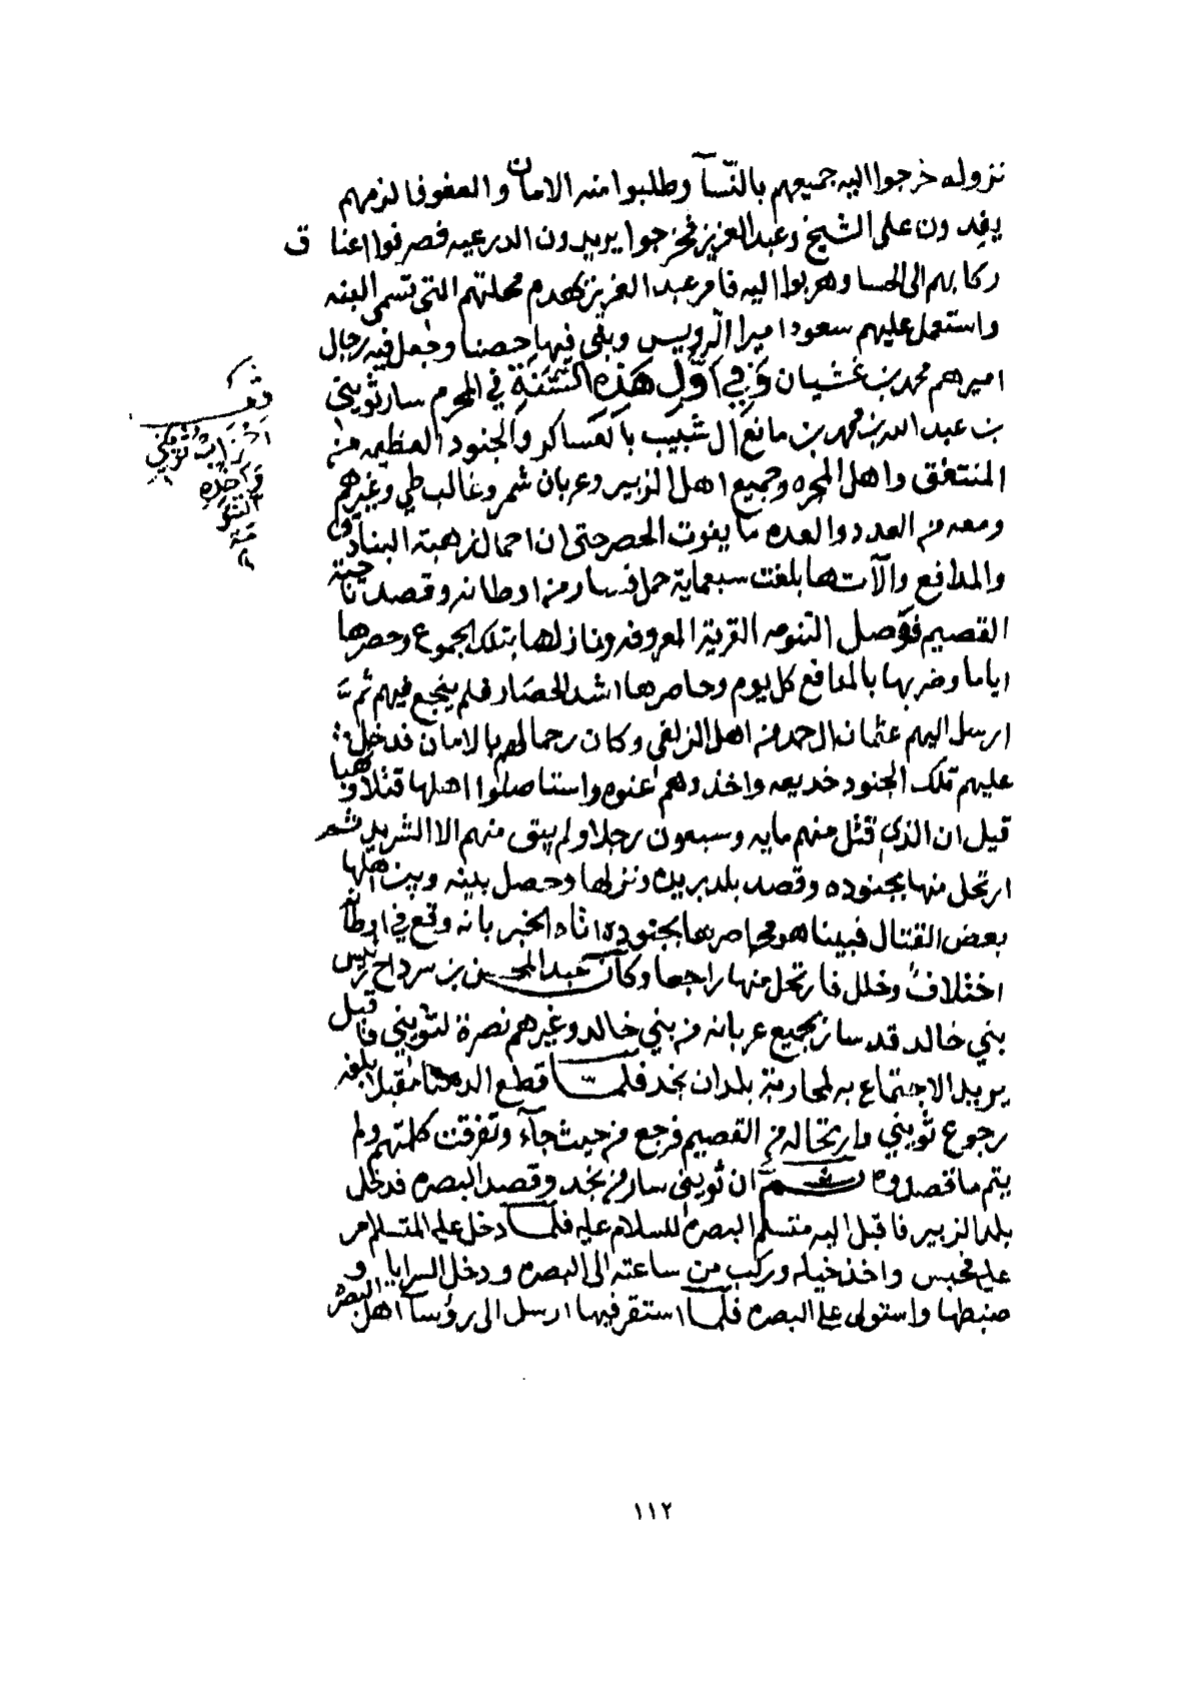 نزوله خرجوا اليه جميعهم بالنسآ وطلبوا منه الامان والعفو فالزمهم
يفدون على الشيخ وعبد العزيز فخرجوا يريدون الدرعيه فصرفوا اعناق
ركابهم الى الحسا وهربوا اليه فامر عبد العزيز بهدم محلتهم التي تسمى العينه
واستعمل عليهم سعود اميرا الرويس وبنى فيها حصنا وجعل فيه رجال
اميرهم محمد بن غشيان وفي اول هذه السنة في المحرم سار ثويني
بن عبد الله بن محمد بن مانع آل شبيب بالعساكر والجنود العظيمه من
المنتفق واهل المجره وجميع اهل الزبير وعربان شمر وغالب طي وغيرهم
ومعه من العدد والعده ما يفوت الحصر حتى ان احمال زهبة البنادق
والمدافع وآلآتها بلغت سبعماية حمل فسار من اوطانه وقصد ناحية
القصيم فوصل التنومه القرية المعروفه ونازلها بتلك الجموع وحصرها
اياما وضربها بالمدافع كل يوم وحاصرها اشد الحصار فلم ينجع فيهم ثم
ارسل اليهم عثمان ال حمد من اهل الزلفي وكان رحما لهم بالامان فدخل
عليهم تلك الجنود خديعه واخذوهم عنوه واستاصلوا اهلها قتلا ونهبا
قيل ان الذي قتل منهم مايه وسبعون رجلا ولم يبق منهم الا الشريد ثم
ارتحل منها بجنوده وقصد بلد بريده ونزلها وحصل بينه وبين اهلها
بعض القتال فبينا هو محاصرها بجنوده اتاه الخبر بانه وقع في اوطانه
اختلاف وخلل فارتحل منها راجعا وكان عبد المحسن بن سرداح رئيس
بني خالد قد سار بجميع عربانه من بني خالد وغيرهم نصرة لثويني فاقبل
يريد الاجتماع به لمحاربة بلدان نجد فلما قطع الدهنا مقبلا بلغه
رجوع ثويني وارتحاله من القصيم فرجع من حيث جآء وتفرقت كلمتهم ولم
يتم ما قصدوه ثم ان ثويني سار من نجد وقصد البصره فدخل
بلد الزبير فاقبل اليه متسلم البصره للسلام عليه فلما دخل عليه المتسلم امر
عليه فحبس واخذ خيله وركب من ساعته الى البصره ودخل السرايا و
ضبطها واستولى على البصره فلما استقر فيها ارسل الى رؤسآ اهل البصره
ثويني
١١٢